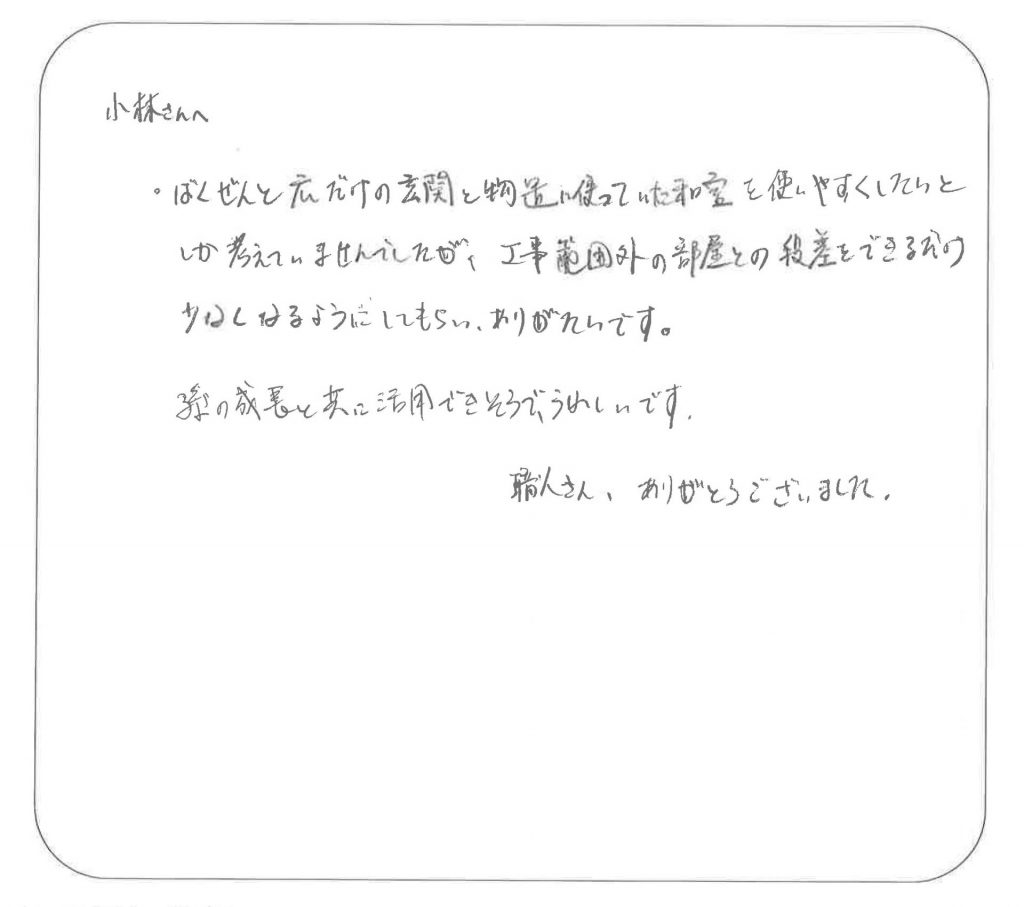 小林さんへ
・ばくぜんと広だけの玄関と物置に使っていた和室を使いやすくしたいと
しか考えていませんでしたが、工事範囲外の部屋との段差をできるだけ
少なくなるようにしてもらい、ありがたいです。
孫の成長と共に活用できそうで、うれしいです。
職人さん、ありがとうございました。